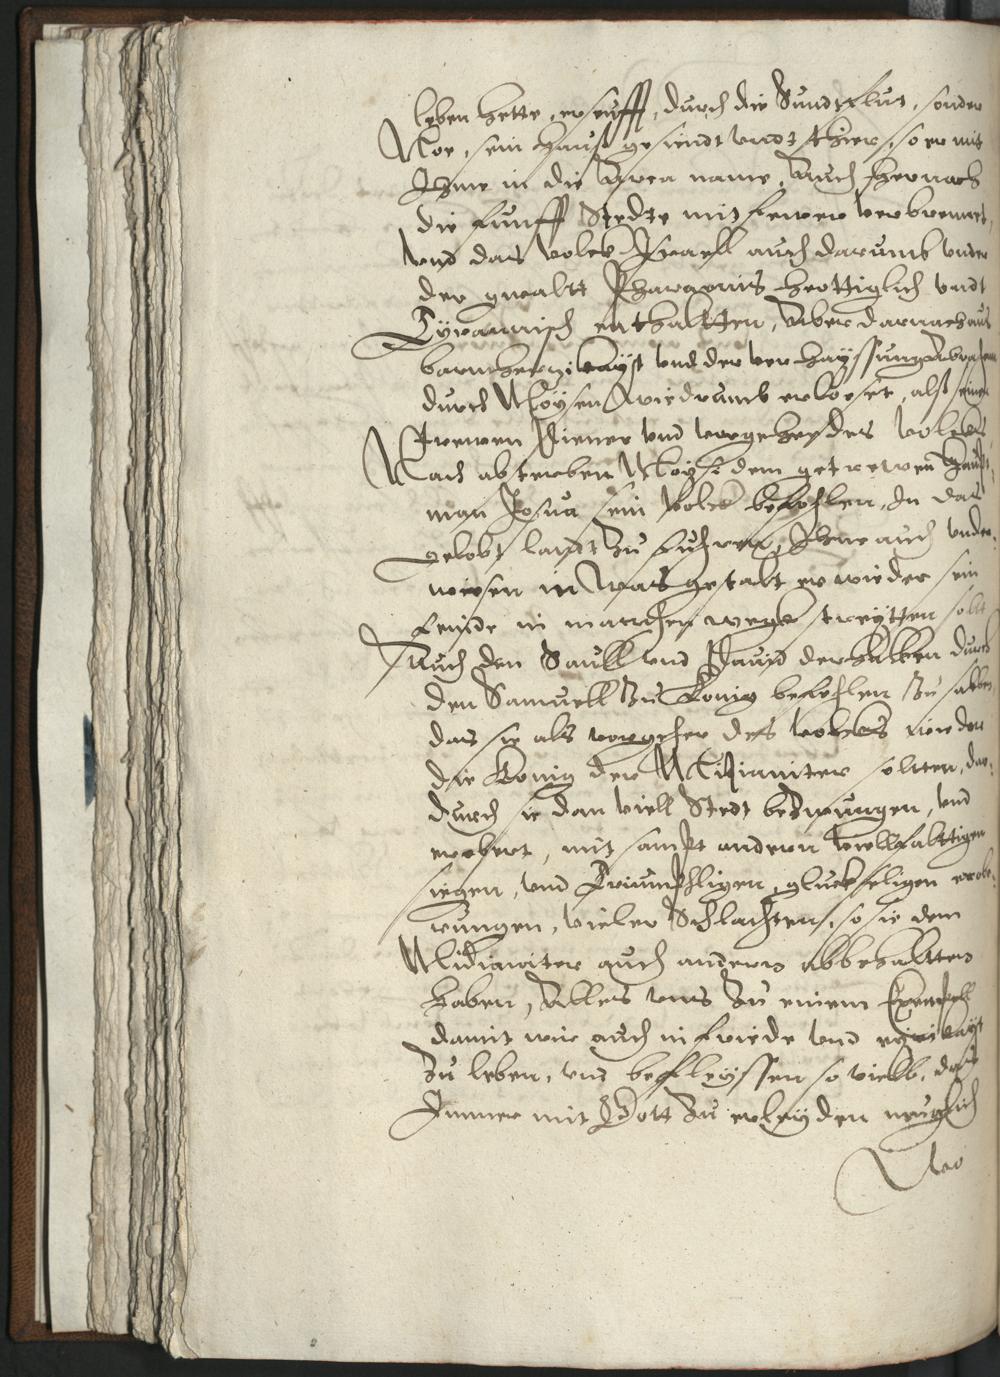 leben hette, erseufft, durch die Sundtflut, sonder
Noe, sein hauß gesindt vndt thier, so er mit
Ihme in die Arca name, Auch hernach
die funff Stedte mit fewer verbrennet,
vnd das volck Israell auch darumb vnder
der gwaltt Pharaonis herttiglich vndt
Tÿrannisch enthaltten, Aber darnach aus
barmhertzikaÿt vnd der verhaÿssung Abrahem
durch Moÿsen wiedrumb erloeset, alß seinen
trewen Diener vnd vorgeher des volckes
Nach absterben Moÿsi dem getrewen haubt
man Josua sein volck befohlen, In das
gelobt landt zu fuhren, Ihme auch vnder-
wiesen in was gestalt er wieder sein
feinde in manchen wege streÿtten solt
Auch den Saull vnd Dauid derhalben durch
den Samuell zu Konig befohlen zu salben
das sie als vorgeher des volckes wieder
die Konig der Midianiter soltten, dar-
durch sie dan viell Stedt bezwungen, vnd
erobert, mit sampt andern vielfalttigen
siegen, vnd Triumphligen, gluckseligen erobe-
rungen, vieler Schlachten, so sie dem
Midianiter auch andern abbehaltten
haben, Alles vns zu einem Exempell
damit wir auch in friede vnd einikaÿt
zu leben, vns befleÿssen so viell, das
Immer mit Gott zu erleÿden muglich
Wo